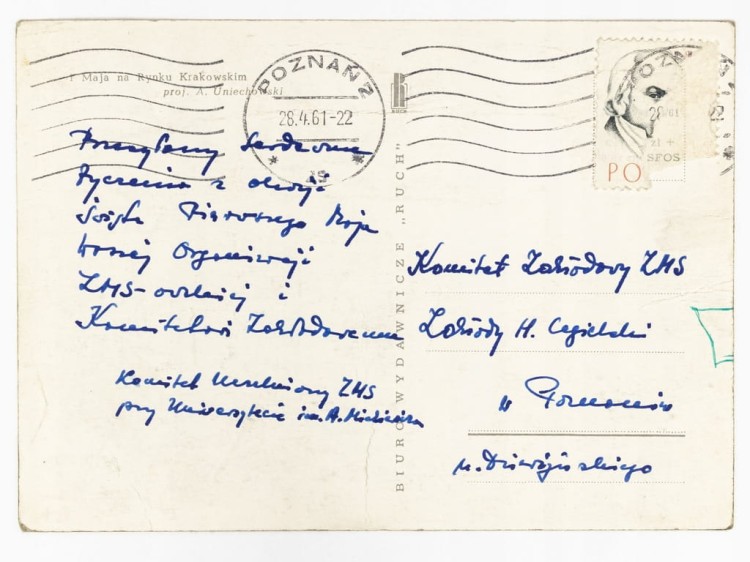 1 Maja na Rynku Krakowskim
proj. A. Uniechowski
POZNAŃ 2
28.4.61-22
zł +
SFOS
PO
Przesyłamy serdeczne
życzenia z okazji
Święta Pierwszego Maja
Waszej Organizacji
ZMS-owskiej i
Komitetowi Zakładowemu
Komitet Uczelniany ZMS
przy Uniwersytecie im. A. Mickiewicza
BIURO WYDAWNICZE „RUCH"
Komitet Zakładowy ZMS
Zakłady H. Cegielski
w Poznaniu
u. Dzierżyńskiego